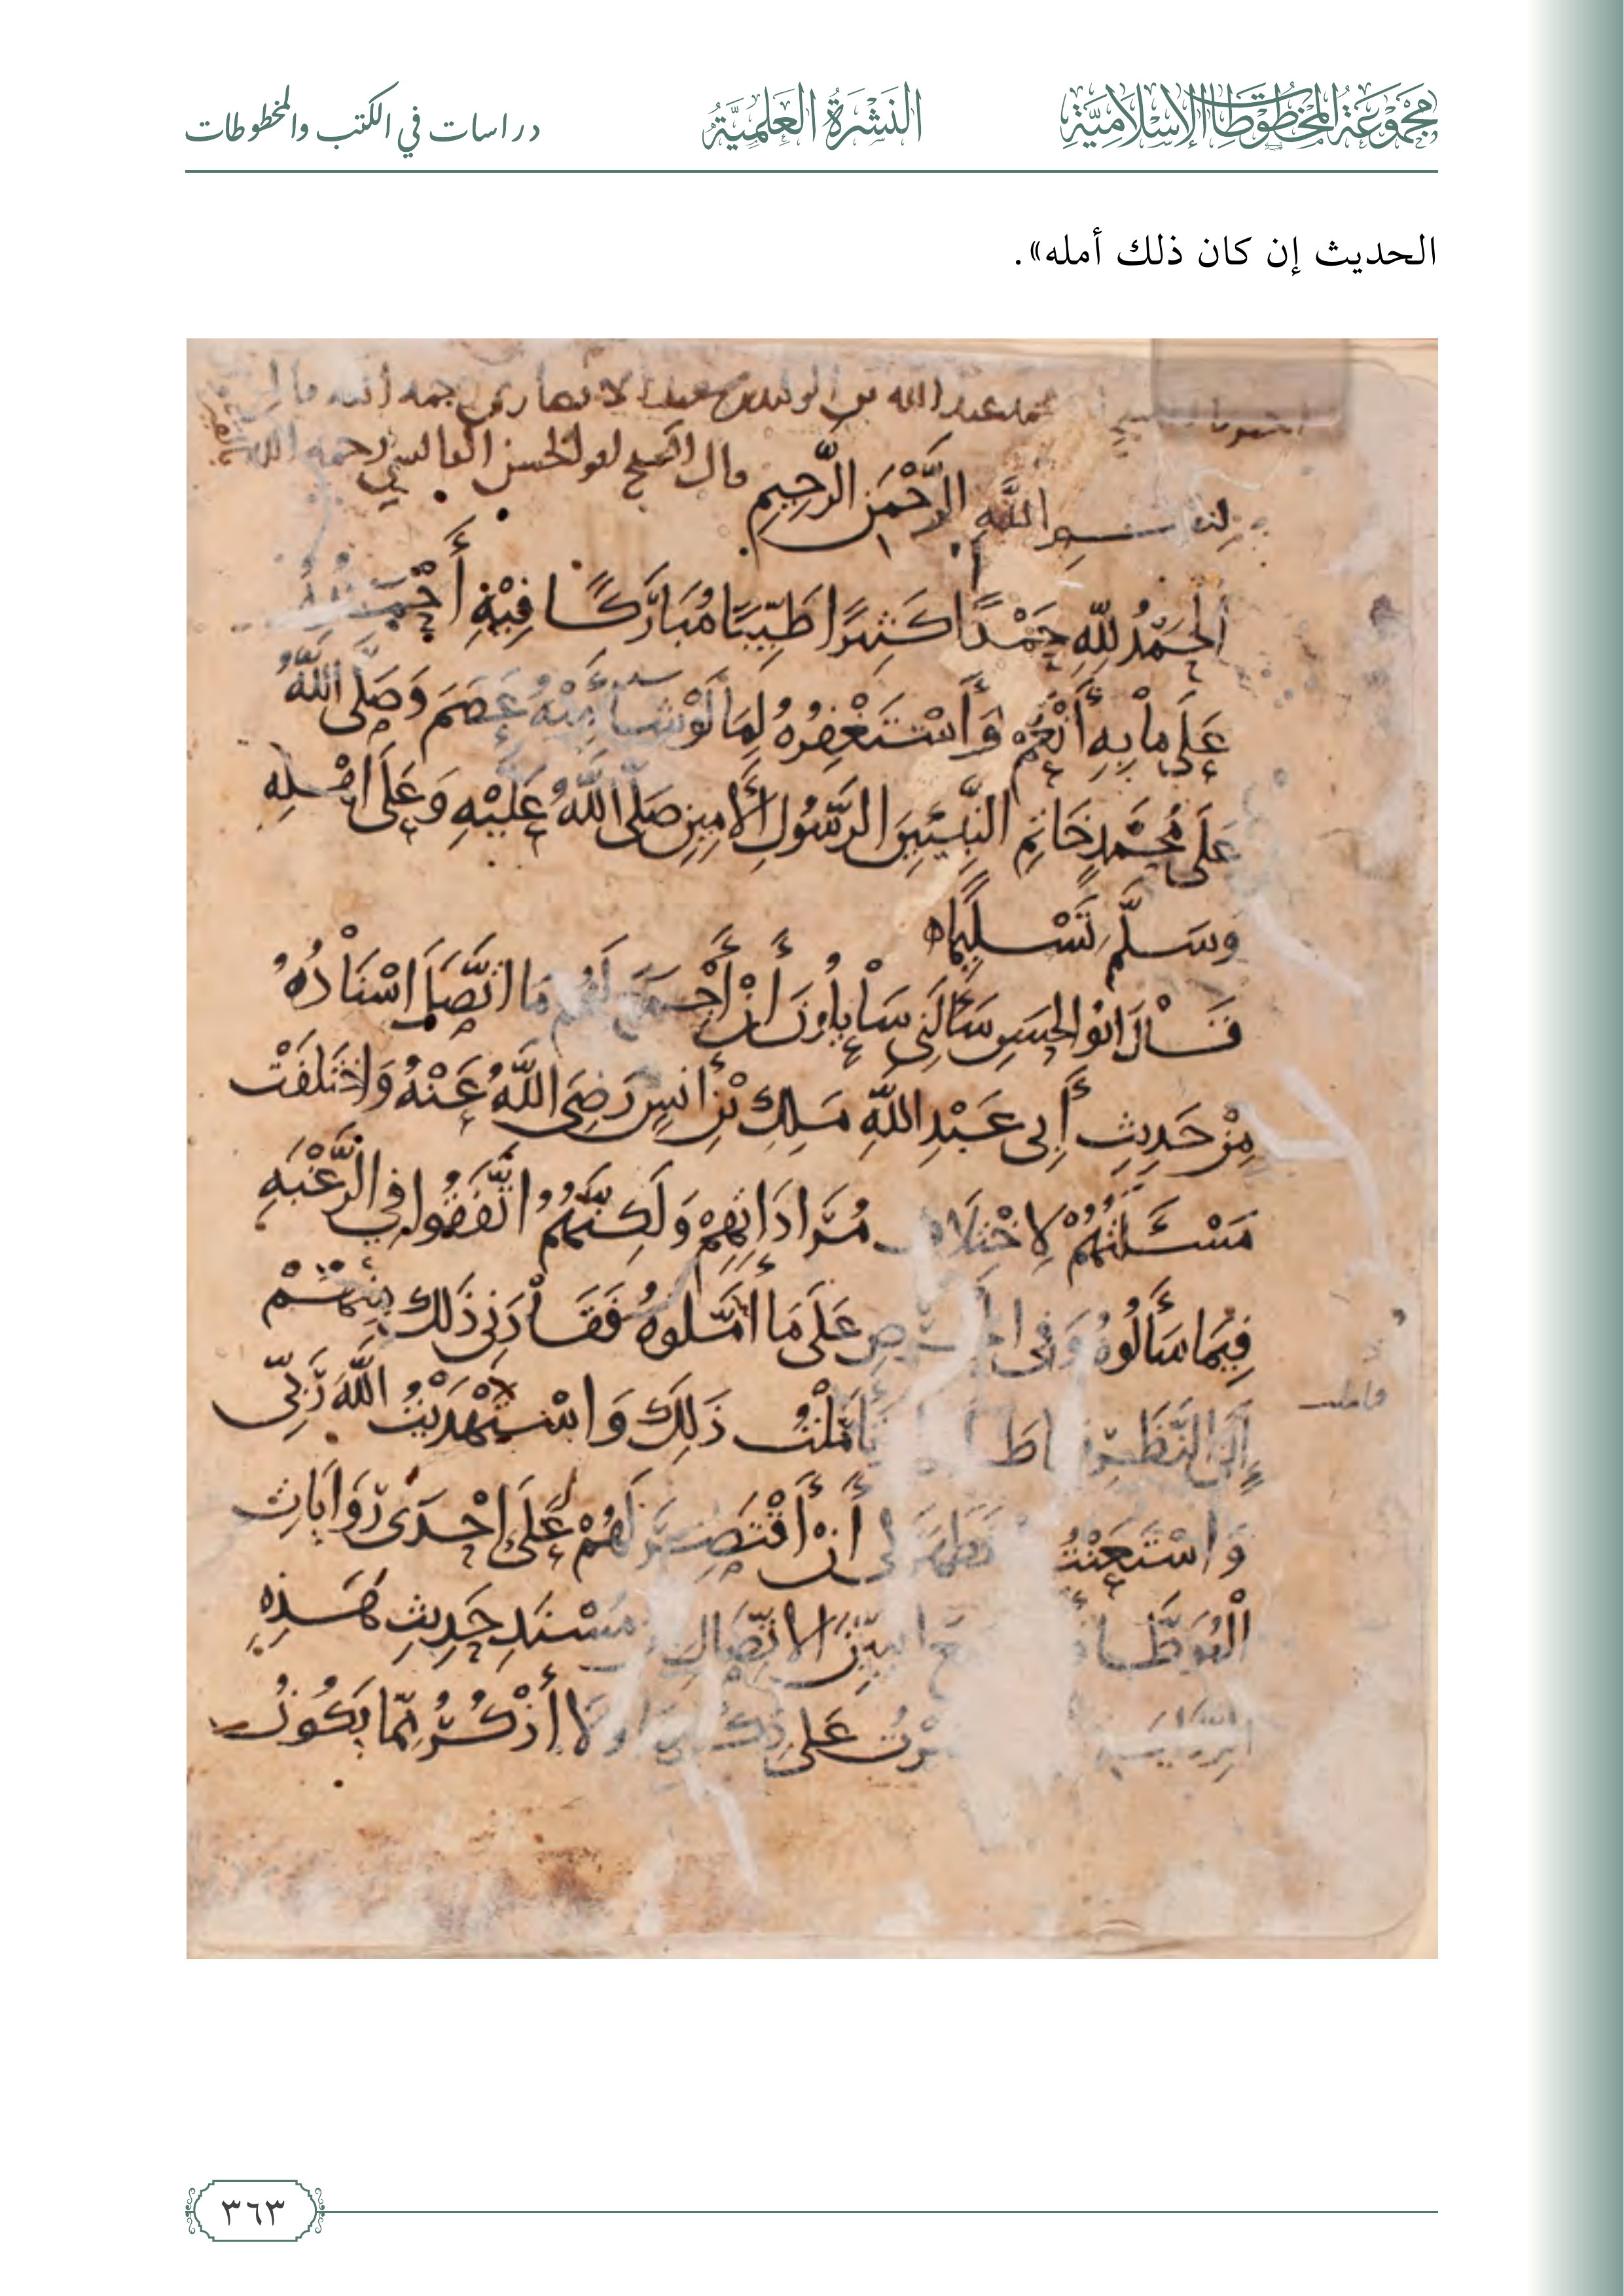 مجموعة المخطوطات الإسلامية
النشرة العلمية
دراسات في الكتب والمخطوطات
الحديث إن كان ذلك أمله».
عبد الله بن الوليد بن الانصاري رحمه الله قال
قال الشيخ ابو الحسن القابسي رحمه الله
بسم الله الرَّحْمَن الرَّحِيمِ
اَلحَمْدُ لِلّهِ حَمْدًا كَثِيرًا طَيِّبًا مُبَارَكًا فِيْهِ أَحْمَدُهُ
عَلَى مَا بِهِ أَنْعَمْ وَأَسْتَغْفِرُهُ لِمَا لَوْ شَا مِنْهُ عَصَمَ وَصَلَّى اللَّهُ
عَلَى مُحَمَّدٍ خَاتِمِ النَّبِيِّينَ الرَّسُولِ الأَمِينِ صَلَّى اللَّهُ عَلَيْهِ وَعَلَى اهْلِهِ
وَسَلَّمَ تَسْلِيمًا
قَالَ ابُو الحَسَنِ سَأَلَنِي سَايِلُونَ انْ أَجْمَعَ لَهُم مَا اتَّصَلَ اسْنَادُهُ
مِنْ حَدِيثِ أَبِي عَبْدِ اللَّهِ مَلِكِ بْنِ أَنَسٍ رَضِيَ اللَّهُ عَنْهُ وَاخْتَلَفَتْ
مَسْئَلَتُهُمْ لِاخْتِلَافِ مُرَادَاتِهِمْ وَلَكِنَّهُمُ اتَّفَقُوا فِي الرَّغْبَهِ
فِيمَا سَأَلُوهُ وَفِي الحِرْصِ عَلَى مَا امَّلُوهُ فَقَادَنِي ذَلِكَ مِنْهُمْ
إِلَى النَّظَرِ تَامَّلْتُ ذَلِكَ وَاسْتَهْدَيْتُ اللَّهَ رَبِّي
فاملت
وَاسْتَعَنْتُ فَظَهَرَ لِي أَنْ أَقْتَصِرَ لَهُمْ عَلَى احْدَى رِوَايَاتِ
الْمُوَطَّا الاتِّصَالِ مُسْنَدِ حَدِيثِ هَذِهِ
عَلَى وَلَا أَذْكُرُ مِمَّا يَكُونُ
٣٦٣